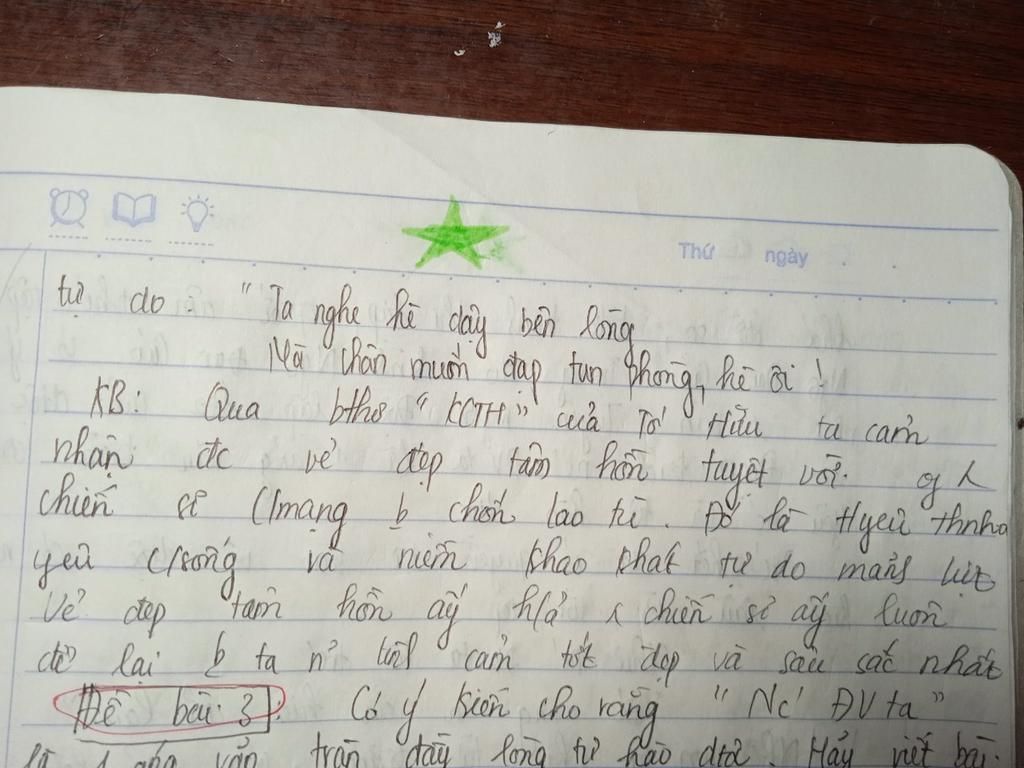 Thứ ngày
tự do "Ta nghe hè dậy bên lòng
Mà chân muốn đạp tan phòng, hè ôi!
KB: Qua bthơ "KCTH" của Tố Hữu ta cảm
nhận đc vẻ đẹp tâm hồn tuyệt vời
chiến sĩ c/mạng b chốn lao tù. Đó là tyêu thnhn
yêu c/sống và niềm khao khát tự do mãnh liệt
Vẻ đẹp tâm hồn ấy h/ả 1 chiến sĩ ấy luôn
để lại b ta n~ tình cảm tốt đẹp và sâu sắc nhất
Đề bài 3: Có ý kiến cho rằng "NcĐVta"
là 1 áng văn tràn đầy lòng tự hào dtộ. Hãy viết bài